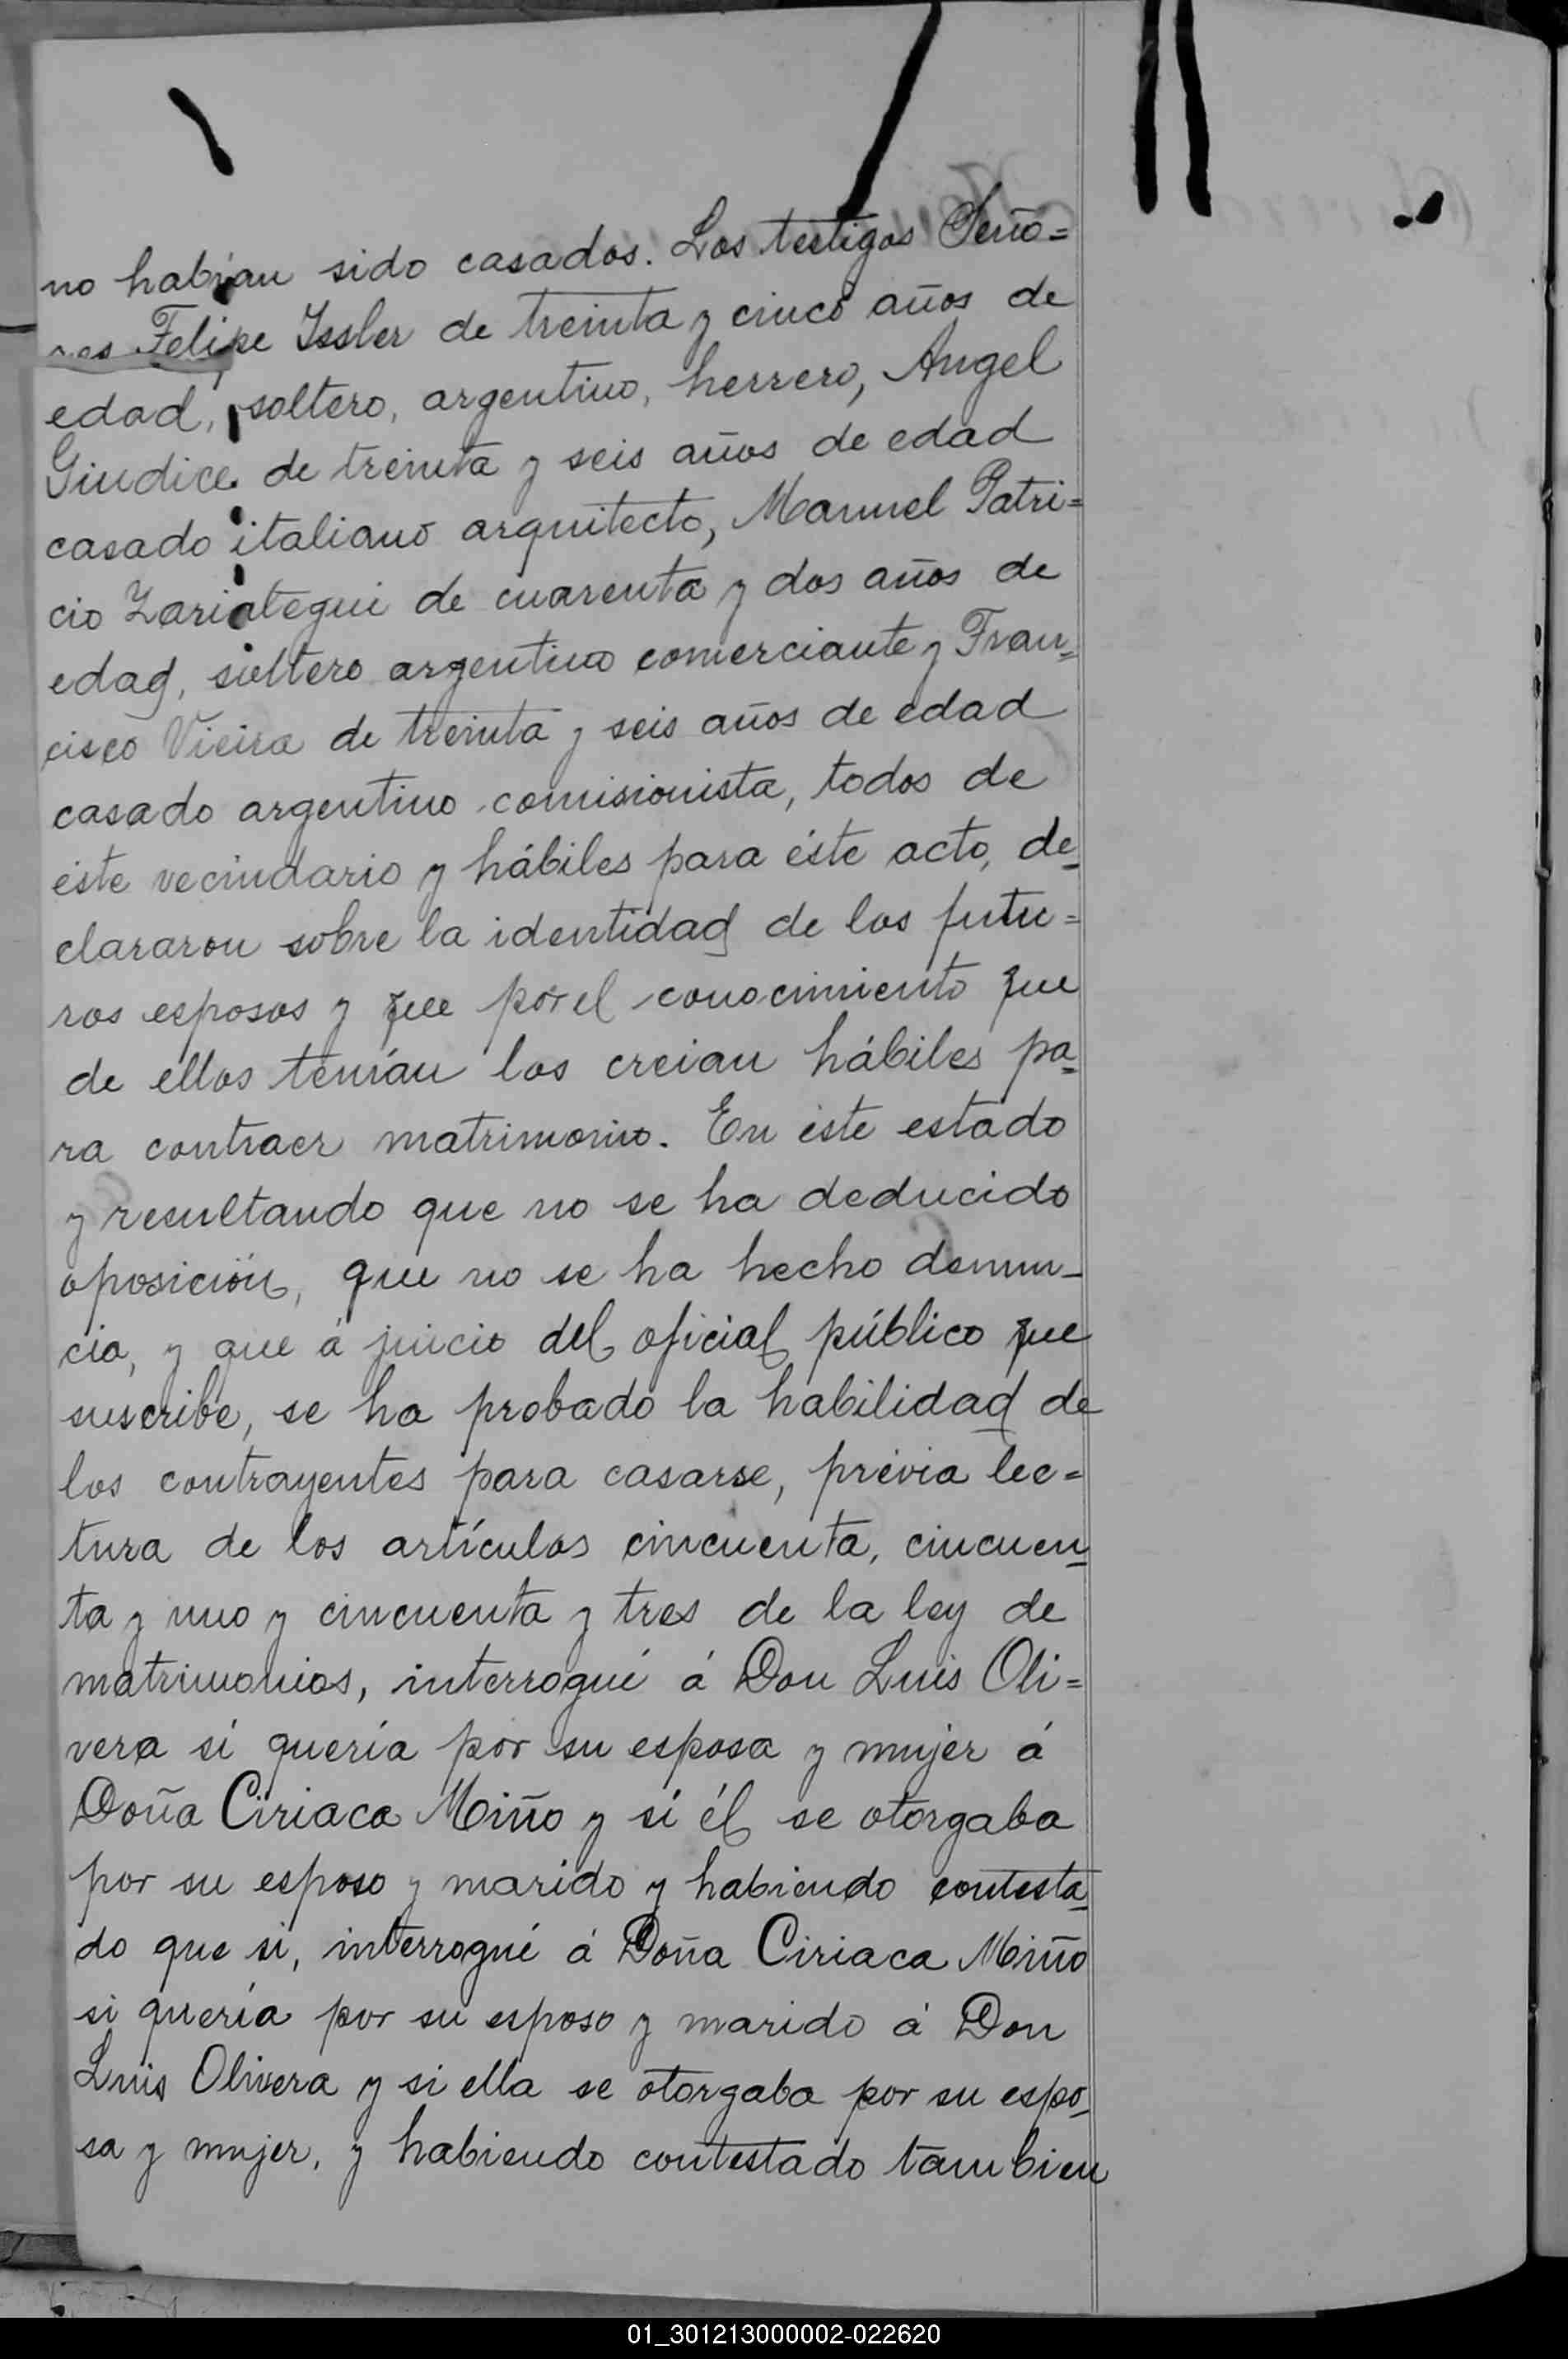 no habían sido casados. Los testigos Seño=
res Felipe Issler de treinta y cinco años de
edad, soltero, argentino, herrero, Angel
Giudice de treinta y seis años de edad
casado italiano arquitecto, Manuel Patri=
cio Zariategui de cuarenta y dos años de
edad, soltero argentino comerciante y Fran=
cisco Vieira de treinta y seis años de edad
casado argentino comisionista, todos de
éste vecindario y hábiles para éste acto, de-
clararon sobre la identidad de los futu=
ros esposos y que por el conocimiento que
de ellos tenían los creian hábiles pa=
ra contraer matrimonio. En éste estado
y resultando que no se ha deducido
oposición, que no se ha hecho denun-
cia, y que á juicio del oficial público que
suscribe, se ha probado la habilidad de
los contrayentes para casarse, prévia lec=
tura de los artículos cincuenta, cincuen-
ta y uno y cincuenta y tres de la ley de
matrimonios, interrogué á Don Luis Oli=
vera si quería por su esposa y mujer á
Doña Ciriaca Miño y sí él se otorgaba
por su esposo y marido y habiendo contesta-
do que si, interrogué á Doña Ciriaca Miño
si quería por su esposo y marido á Don
Luis Olivera y si ella se otorgaba por su espo-
sa y mujer, y habiendo contestado tambien
01_301213000002-022620